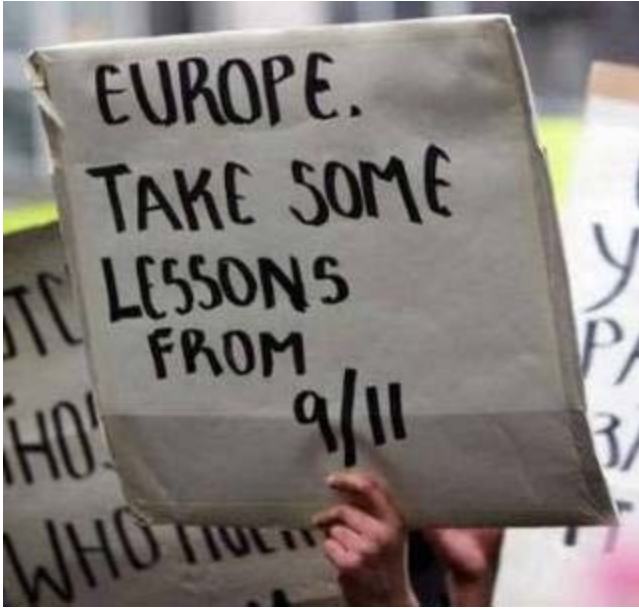 EUROPE.
TAKE SOME
LESSONS
FROM
9/11
WHO